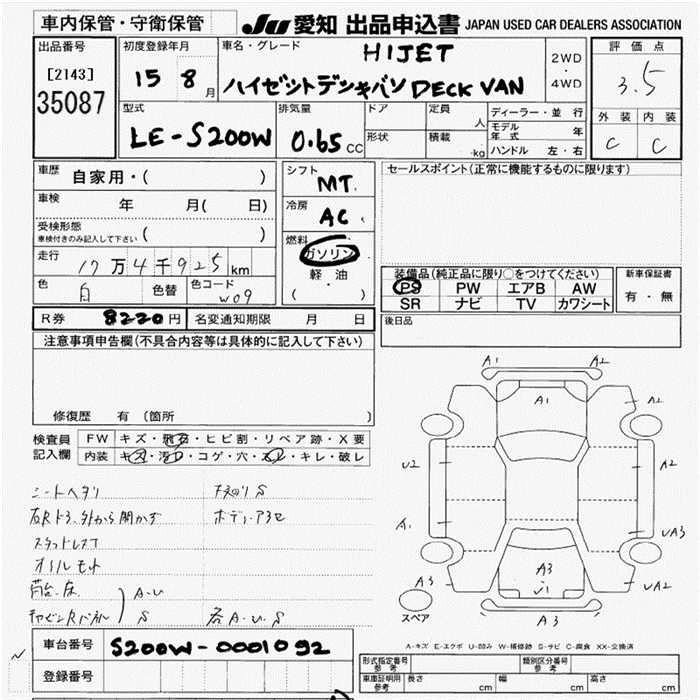 車内保管・守衛保管 JU 愛知 出品申込書 JAPAN USED CAR DEALERS ASSOCIATION
出品番号 [2143] 35087
初度登録年月 15 8月
車名・グレード HIJET
ハイゼットデッキバン DECK VAN
2WD・4WD
評価点 3.5
外装 内装
C C
型式 LE-S200W
排気量 0.65 CC
ドア 形状
定員 人
積載 kg
ディーラー・並行
モデル年式 年
ハンドル 左・右
車歴 自家用・( )
車検 年 月( 日)
受検形態 車検付きのみ記入して下さい ( )
走行 17万4千925km
色 白 色替 色コード W09
シフト MT
冷房 AC
燃料 ガソリン
軽・油
( )
セールスポイント(正常に機能するものに限ります)
装備品(純正品に限り○をつけてください)
PS PW エアB AW
SR ナビ TV カワシート
新車保証書
有・無
後日品
R券 8220円 名変通知期限 月 日
注意事項申告欄(不具合内容等は具体的に記入して下さい)
修復歴 有 (箇所
検査員記入欄
FW キズ・飛石・ヒビ割・リペア跡・X要
内装 キズ・汚れ・コゲ・穴・スレ・キレ・破レ
シートヘタリ
右Rドア外から開かず
スタッドレス
オイルモレ
荷台床 A-U
キャビンRパネル S
下廻りS
ボディーアユセ
各A.U.S
A1 A2
A1
A2
U2 A2
A1 UA3
A3 A3 U1 UA2
A3
スペア
A-キズ E-エクボ U-凹み W-補修跡 S-サビ C-腐食 XX-交換済
車台番号 S200W-0001092
登録番号
形式指定番号 参考 類別区分番号 参考
車庫証明用 参考 長さ cm 幅 cm 高さ cm